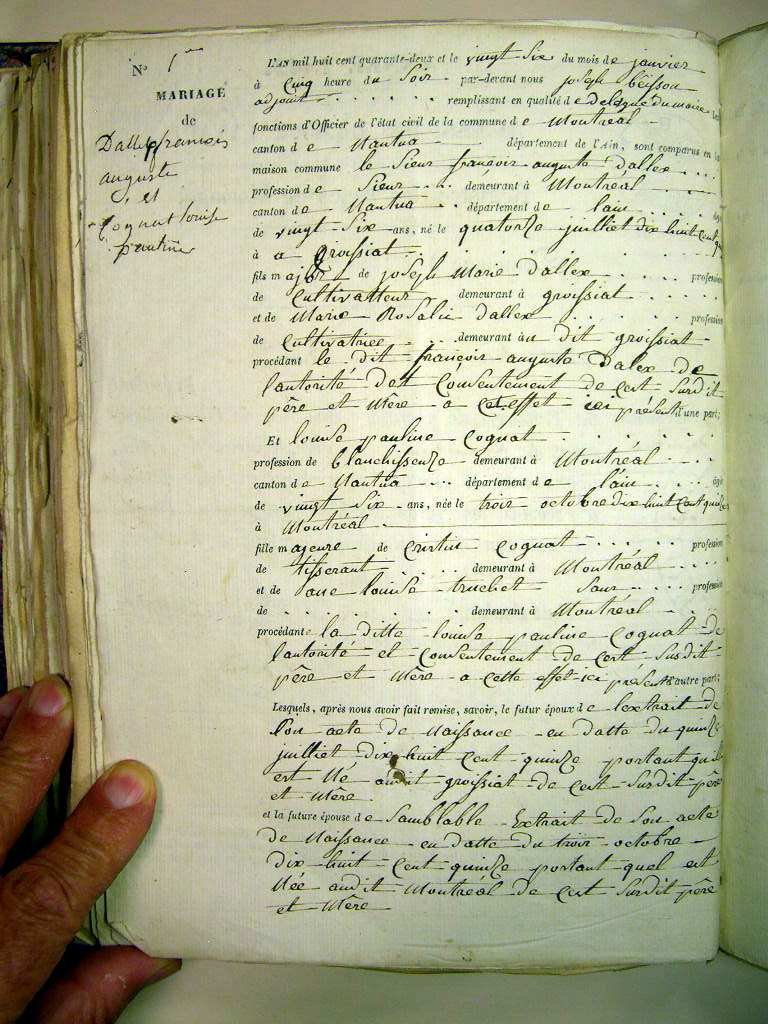 N° 1er
MARIAGE
de
Dallex françois
auguste
et
Cognat louise
pauline
L'AN mil huit cent quarante-deux et le vingt Six du mois de janvier
à Cinq heure du Soir par-devant nous joseph Beisson
adjoint remplissant en qualité de delegue du maire les
fonctions d'Officier de l'état civil de la commune de Montreal
canton de Nantua département de l'Ain, sont comparus en la
maison commune le Sieur françoir auguste dallex
profession de Sieur demeurant à Montréal
canton de Nantua département de lain âgé
de vingt Six ans, né le quatorze juilliet dix huit cent qu
à a groissiat
fils majeur de joseph Marie Dallex profession
de Cultivatteur demeurant à groissiat
et de Marie Rosalie Dallex profession
de Cultivatrice demeurant au dit groissiat
procédant le dit françoir auguste Dalex de
l'autorité et Consentement de cert Surdit
père et Mère a cet effet ici présent d'une part;
Et louise pauline Cognat
profession de blanchisseuze demeurant à Montréal
canton de Nantua département de l'ain âgé
de vingt Six ans, née le troir octobre dix huit Cent quinze
à Montréal
fille majeure de Cristin Cognat profession
de tisserant demeurant à Montréal
et de ane louise truchet Sans profession
de demeurant à Montréal
procédante la ditte louise pauline Cognat de
lautorité et Consentement de cert Susdit
père et Mère a cette effet ici présent d'autre part;
Lesquels, après nous avoir fait remise, savoir, le futur époux de lextrait de
Son acte de Naissance en datte du quinze
juilliet dix huit cent quinze portant qu'il
est Né audit groissiat de cert Surdit père
et Mère
et la future épouse de Samblable Extrait de Son acte
de Naissance en datte du troir octobre
dix huit Cent quinze portant quel est
Née audit Montréal de cert Surdit père
et Mère